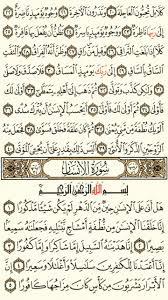 كَلَّا بَلْ تُحِبُّونَ ٱلْعَاجِلَةَ ٢٠ وَتَذَرُونَ ٱلْـَٔاخِرَةَ ٢١ وُجُوهٌ يَوْمَئِذٍ نَّاضِرَةٌ ٢٢
إِلَىٰ رَبِّهَا نَاظِرَةٌ ٢٣ وَوُجُوهٌ يَوْمَئِذٍۭ بَاسِرَةٌ ٢٤ تَظُنُّ أَن يُفْعَلَ بِهَا فَاقِرَةٌ
٢٥ كَلَّآ إِذَا بَلَغَتِ ٱلتَّرَاقِيَ ٢٦ وَقِيلَ مَنْ رَاقٍ ٢٧ وَظَنَّ أَنَّهُ ٱلْفِرَاقُ ٢٨ وَٱلْتَفَّتِ ٱلسَّاقُ بِٱلسَّاقِ
٢٩ إِلَىٰ رَبِّكَ يَوْمَئِذٍ ٱلْمَسَاقُ ٣٠ فَلَا صَدَّقَ وَلَا صَلَّىٰ ٣١ وَلَٰكِن كَذَّبَ وَتَوَلَّىٰ
٣٢ ثُمَّ ذَهَبَ إِلَىٰٓ أَهْلِهِۦ يَتَمَطَّىٰٓ ٣٣ أَوْلَىٰ لَكَ فَأَوْلَىٰ
٣٤ ثُمَّ أَوْلَىٰ لَكَ فَأَوْلَىٰٓ ٣٥ أَيَحْسَبُ ٱلْإِنسَٰنُ أَن يُتْرَكَ سُدًى ٣٦ أَلَمْ يَكُ
نُطْفَةً مِّن مَّنِىٍّ يُمْنَىٰ ٣٧ ثُمَّ كَانَ عَلَقَةً فَخَلَقَ فَسَوَّىٰ ٣٨ فَجَعَلَ مِنْهُ
ٱلزَّوْجَيْنِ ٱلذَّكَرَ وَٱلْأُنثَىٰٓ ٣٩ أَلَيْسَ ذَٰلِكَ بِقَٰدِرٍ عَلَىٰٓ أَن يُحْـِۧىَ ٱلْمَوْتَىٰ ٤٠
سُورَةُ الْإِنسَانِ
بِسْمِ ٱللَّهِ ٱلرَّحْمَٰنِ ٱلرَّحِيمِ
هَلْ أَتَىٰ عَلَى ٱلْإِنسَٰنِ حِينٌ مِّنَ ٱلدَّهْرِ لَمْ يَكُن شَيْـًٔا مَّذْكُورًا ١
إِنَّا خَلَقْنَا ٱلْإِنسَٰنَ مِن نُّطْفَةٍ أَمْشَاجٍ نَّبْتَلِيهِ فَجَعَلْنَٰهُ سَمِيعًۢا
بَصِيرًا ٢ إِنَّا هَدَيْنَٰهُ ٱلسَّبِيلَ إِمَّا شَاكِرًا وَإِمَّا كَفُورًا ٣
إِنَّآ أَعْتَدْنَا لِلْكَٰفِرِينَ سَلَٰسِلَا۟ وَأَغْلَٰلًا وَسَعِيرًا ٤